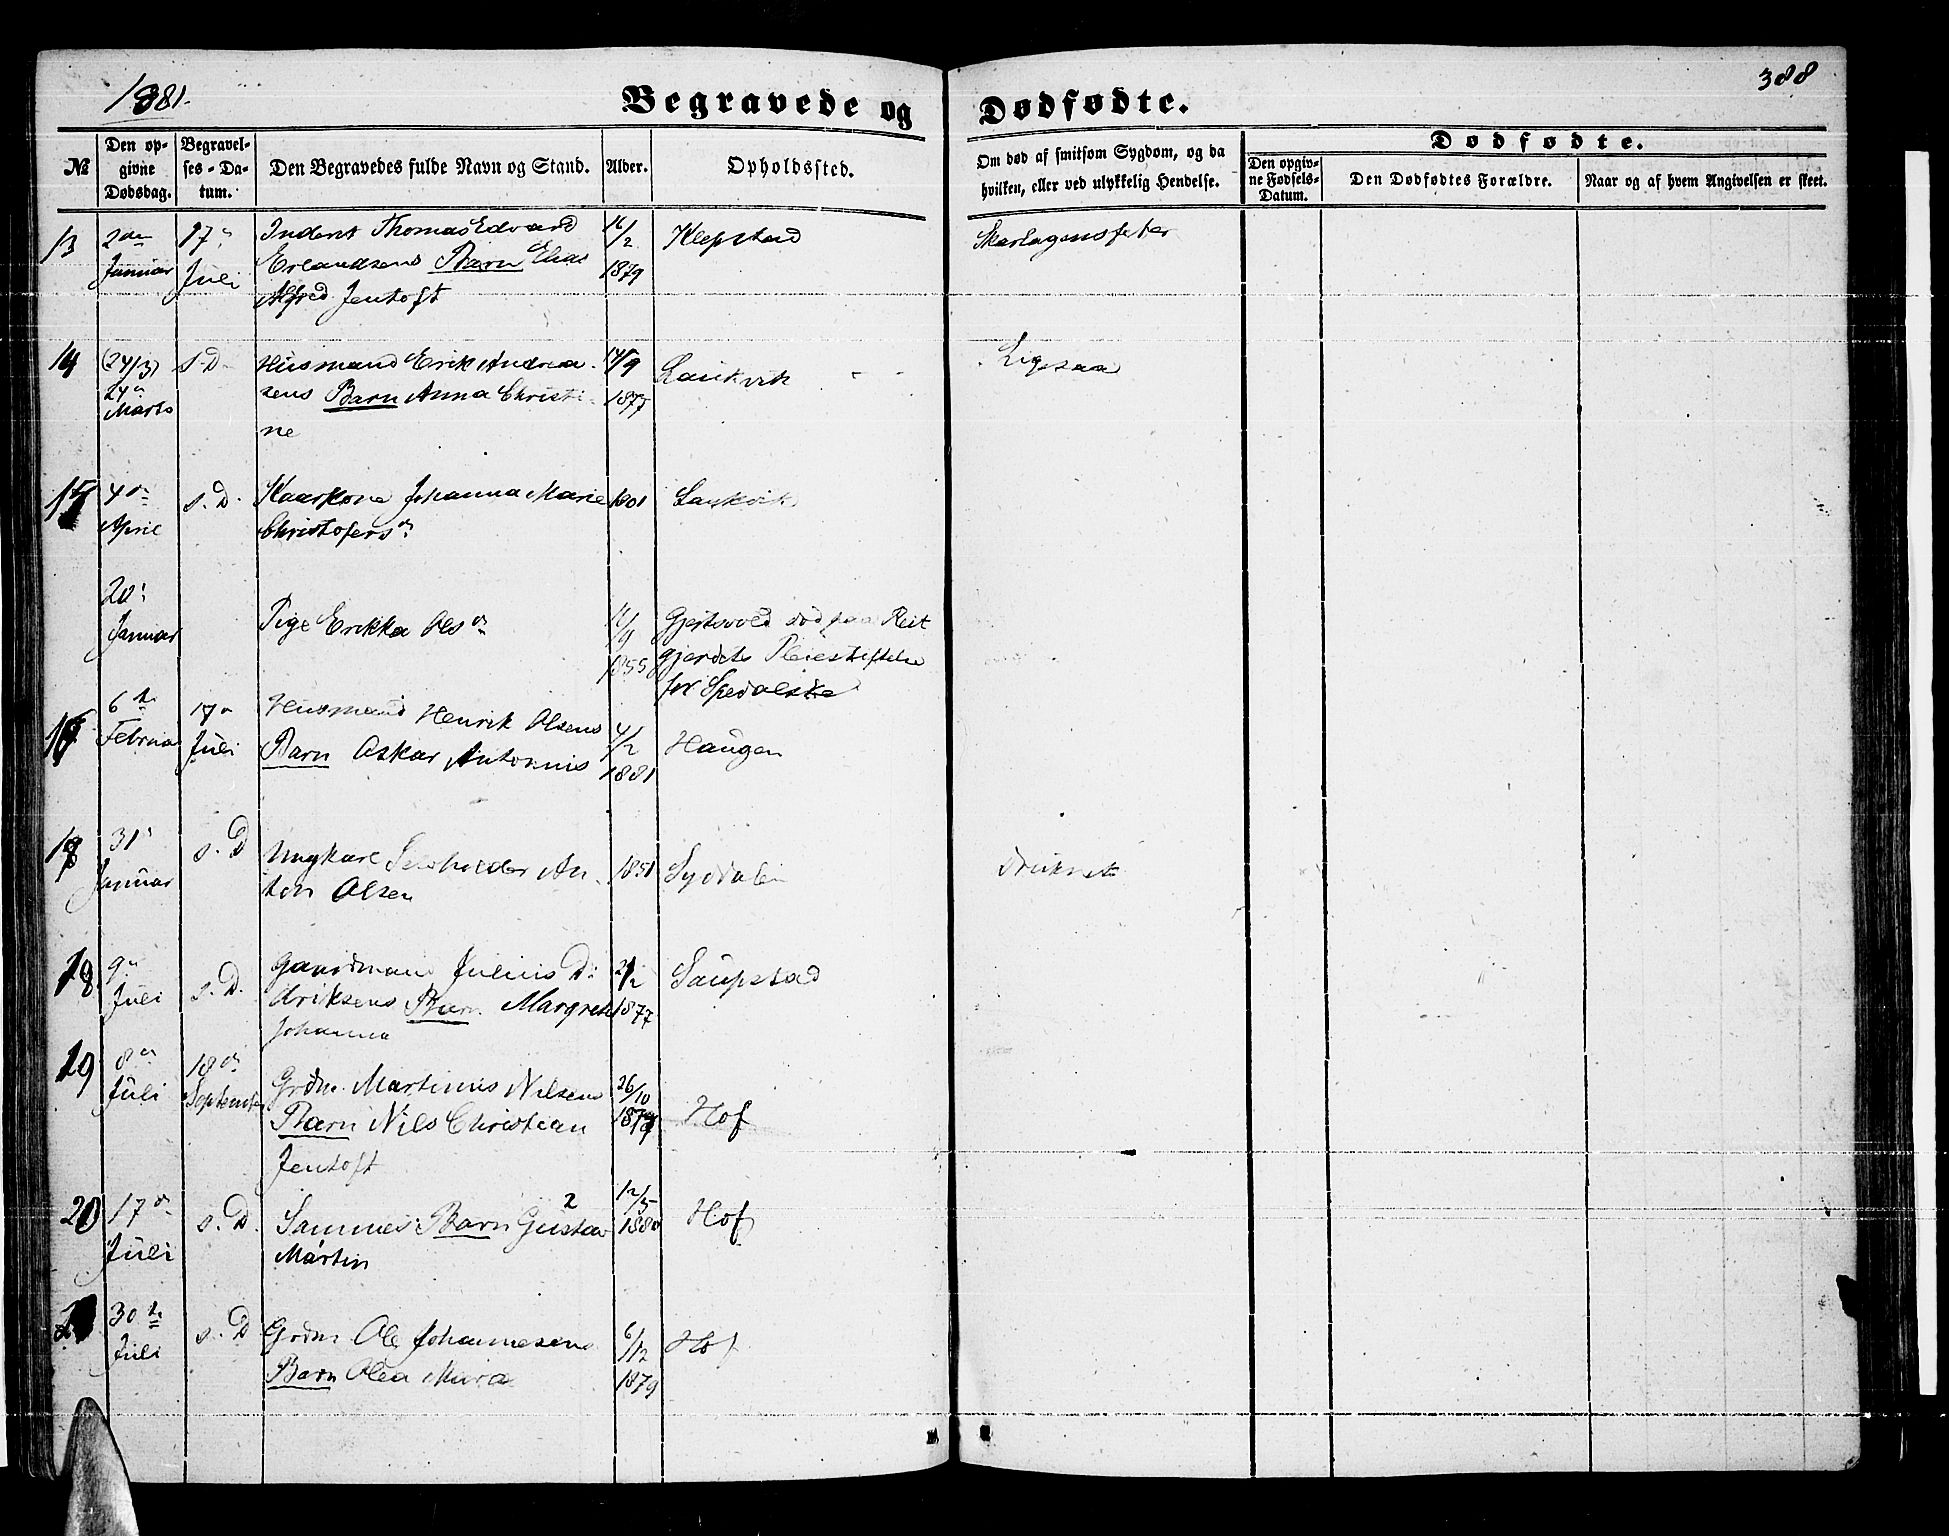 1881.
Begravede og Dødfødte.
388
№
Den opgivne Dødsdag.
Begravelses-Datum.
Den Begravedes fulde Navn og Stand.
Alder.
Opholdssted.
Om død af smitsom Sygdom, og da hvilken, eller ved ulykkelig Hendelse.
Dødfødte.
Den opgivne Fødsels-Datum.
Den Dødfødtes Forældre.
Naar og af hvem Angivelsen er skeet.
13 2den 17de Inderst Thomas Edvard 16/2 Klepstad Skarlagensfeber
Januar Juli Erlandsens Barn Elias 1879
Alfred Jentoft
14 (24/3) s.D. Husmand Erik Andrea- 14/9 Laukvik Ligesaa
24de Marts sens Barn Anna Christi- 1877
ne
15 4de s.D. Kaarkone Johanna Marie 1801 Laukvik
April Christofersdr
20de
Januar Pige Erikka Olsdr 11/9 1855 Gjerstevold død paa Reit
gjerdets Pleiestiftelse
for Spedalske
16 6te 17de Husmand Henrik Olsens 4/2 Haugen
Februar Juli Barn Oskar Antonius 1881
17 31de s.D Ungkarl Selvholder An- 1851 Sydalen druknet
Januar ton Olsen
18 9de s.D. Gaardmand Julius Di- 2/2 Saupstad
Juli driksens Barn Margrete 1877
Johanna
19 8de 18de Grdm. Martinus Nilsens 26/10 Hof
Juli September Barn Nils Christian 1879
Jentoft
20 17de s.D. Sammes Barn 2 Gustav 12/5 1880 Hof
Juli Martin
30te s.D Grdm Ole Johannesens 6/12 Hof
Juli Barn Olea Maria 1879